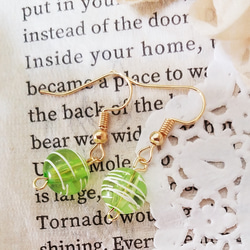 put in your
instead of the door
Inside your home,
became a place to wa
the back of the
bear was wid
Mole, o
is large,
Tornado would
shining. Every